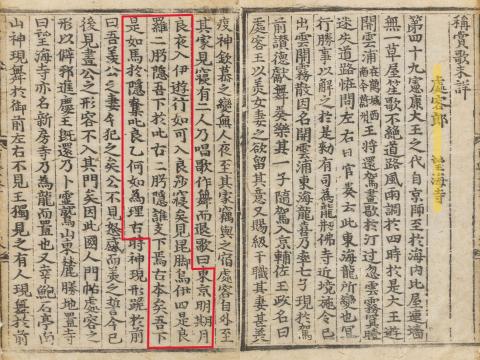 稱賞歌未詳
處容郎 望海寺
第四十九憲康大王之代自京師至於海內比屋連墻
無一草屋笙歌不絕道路風雨調於四時於是大王遊
開雲浦在鶴城西南今蔚州王將還駕晝歇於汀过忽雲霧冥曀
迷失道路怪問左右日官奏云此東海龍所變也宜
行勝事以解之於是勑有司爲龍刱佛寺近境施令已
出雲開霧散因名開雲浦東海龍喜乃率七子現於駕
前讚德獻舞奏樂其一子隨駕入京輔佐王政名曰
處容王以美女妻之欲留其意又賜級干職其妻甚美
疫神欽慕之變無人夜至其家竊與之宿處容自外至
其家見寢有二人乃唱歌作舞而退歌曰東京明期月
良夜入伊遊行如可入良沙寢矣見昆脚烏伊四是良
羅二肹隱吾下於叱古二肹隱誰支下焉古本矣吾下
是如馬於隱奪叱良乙何如爲理古時神現形跪於前
曰吾羨公之妻今犯之矣公不見怒感而美之誓今已
後見畫公之形容不入其門矣因此國人門帖處容之
形以僻邪進慶王旣還乃卜靈鷲山東麓勝地置寺
曰望海寺亦名新房寺乃爲龍而置也又幸鮑石亭南
山神現舞於御前左右不見王獨見之有人現舞於前